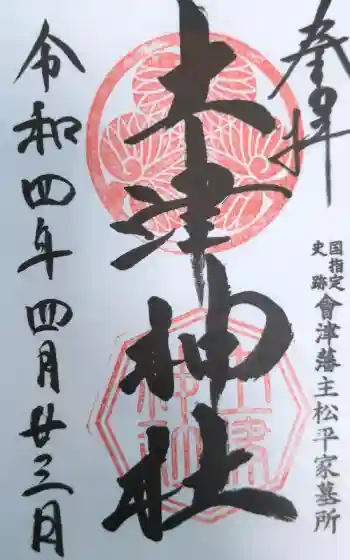 奉拝
国指定
史跡
會津藩主松平家墓所
土津神社
令和四年四月廿三日